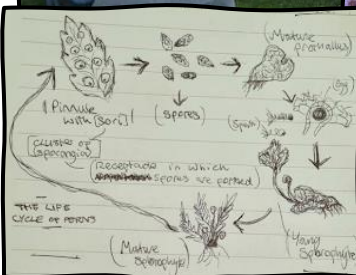 (Mature
prothallus)
(Egg)
(Sperm)
Pinnule
with [sori]
(spores)
cluster of
sporangia
Receptacle in which
spores are formed
THE LIFE
CYCLE OF FERNS
(Mature
Sporophyte)
(Young
Sporophyte)